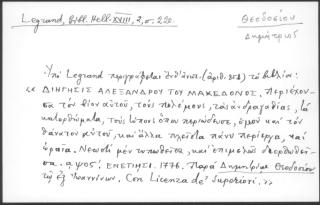 Legrand, Bibl. Hell. XVIII, 2, σ. 220.
Θεοδοσίου
Δημήτριος
Ὑπὸ Legrand περιγράφεται (ἀριθ. 858) τὸ βιβλίον:
« ΔΙΗΓΗΣΙΣ ΑΛΕΞΑΝΔΡΟΥ ΤΟΥ ΜΑΚΕΔΟΝΟΣ, Περιέχου-
σα τὸν βίον αὐτοῦ, τοὺς πολέμους, τὰς ἀνδραγαθίας, τὰ
κατορθώματα, τοὺς τόπους ὁποῦ περιώδευσε, ὁμοῦ καὶ τὸν
θάνατον αὐτοῦ, καὶ ἄλλα πλεῖστα πάνυ περίεργα, καὶ
ὡραῖα. Νεωστὶ μὲν τυπωθεῖσα, καὶ ἐπιμελῶς διορθωθεῖ-
σα. αψοςʹ. ΕΝΕΤΙΗΣΙ. 1776. Παρὰ Δημητρίῳ Θεοδοσίου
τῷ ἐξ Ἰωαννίνων. Con Licenza de' Superiori. »